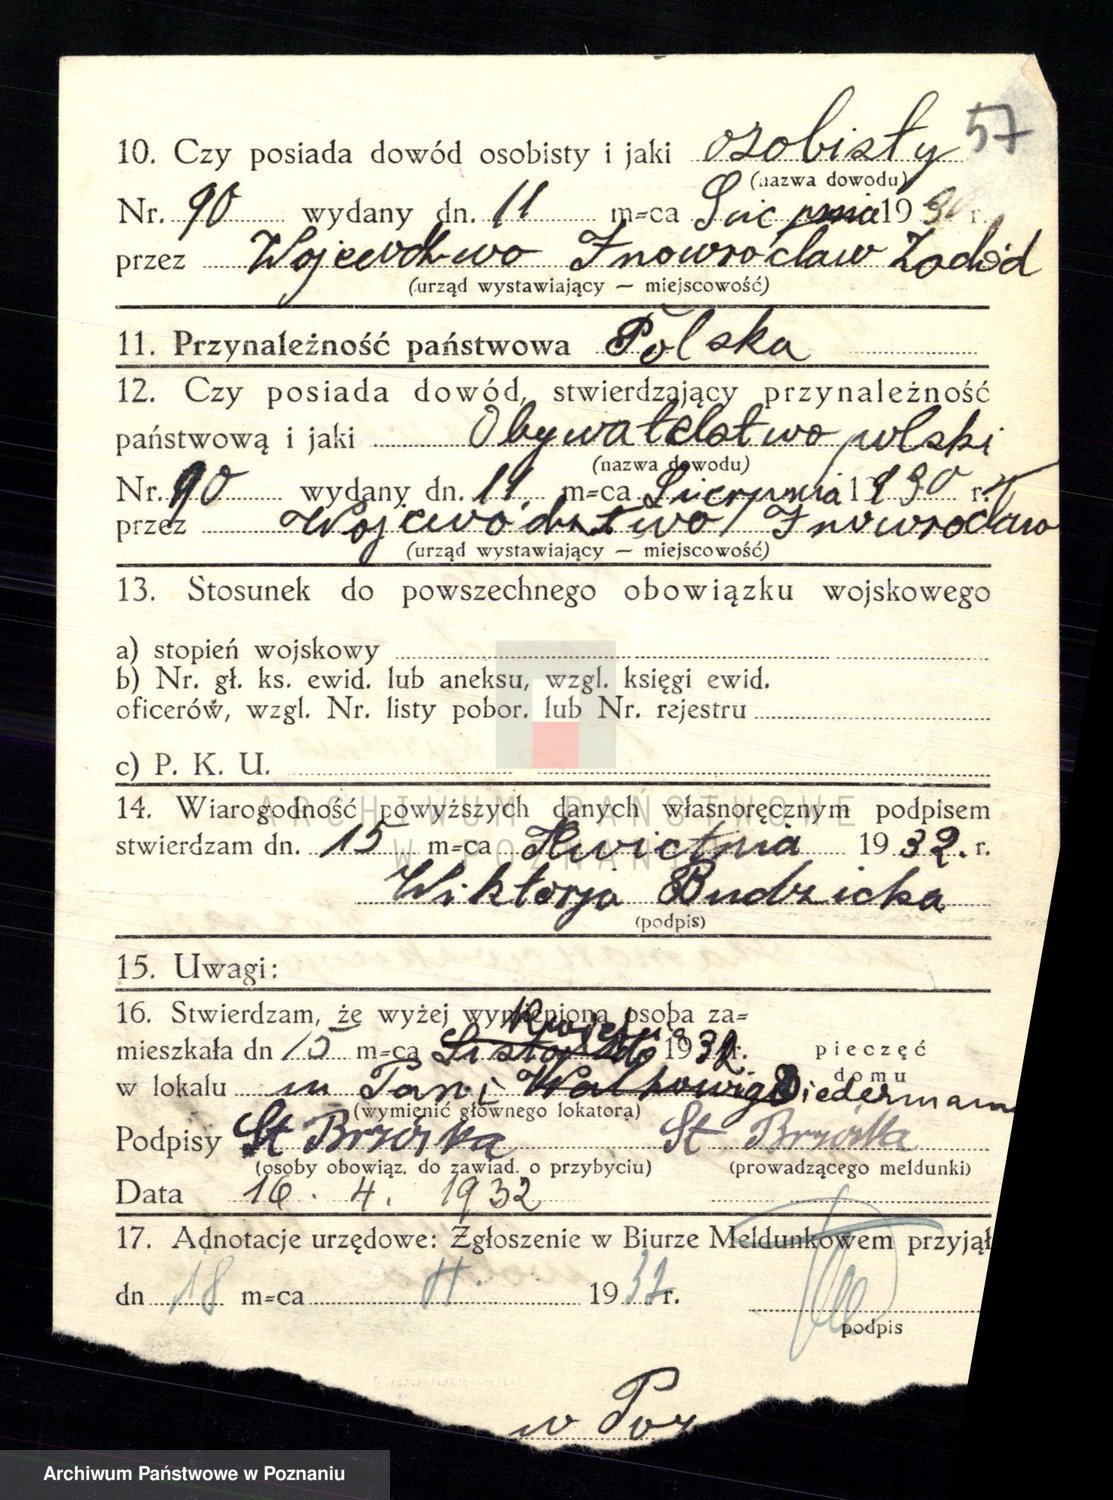 57
10. Czy posiada dowód osobisty i jaki osobisty
(nazwa dowodu)
Nr. 90 wydany dn. 11 m=ca 19 r.
przez Wojewdztwo Inowrocław
(urząd wystawiający — miejscowość)
11. Przynależność państwowa Polska
12. Czy posiada dowód, stwierdzający przynależność
państwową i jaki Obywatelstwo polski
(nazwa dowodu)
Nr. 90 wydany dn. 11. m=ca Sierpnia 1930 r.
przez Wojewódstwo Inowrocław
(urząd wystawiający — miejscowość)
13. Stosunek do powszechnego obowiązku wojskowego
a) stopień wojskowy
b) Nr. gł. ks. ewid. lub aneksu, wzgl. księgi ewid.
oficerów, wzgl. Nr. listy pobor. lub Nr. rejestru
c) P. K. U.
ARCHIWUM PAŃSTWOWE
W POZNANIU
14. Wiarogodność powyższych danych własnoręcznym podpisem
stwierdzam dn. 15 m=ca Kwietnia 1932. r.
Wiktorja Budzicka
(podpis)
15. Uwagi:
16. Stwierdzam, że wyżej wymieniona osoba za=
mieszkała dn 15 m=ca 1932 r. pieczęć
domu
w lokalu Pani Biedermann
(wymienić głównego lokatora)
Podpisy St Brzóska St Brzóska
(osoby obowiąz. do zawiad. o przybyciu) (prowadzącego meldunki)
Data 16. 4. 1932
17. Adnotacje urzędowe: Zgłoszenie w Biurze Meldunkowem przyjął
dn 18 m=ca 1932 r.
podpis
w Poz
Archiwum Państwowe w Poznaniu